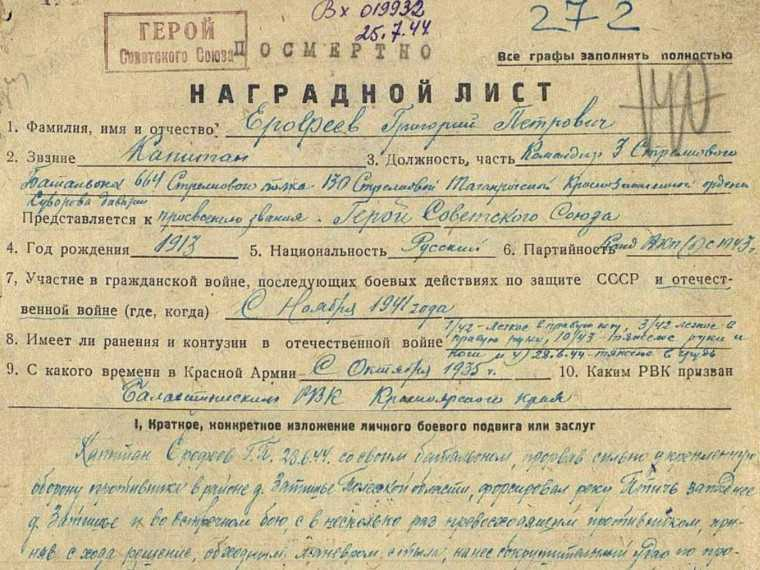 Вх 019932
25.7.44
272
ГЕРОЙ
Советского Союза
ПОСМЕРТНО
Все графы заполнять полностью
НАГРАДНОЙ ЛИСТ
1. Фамилия, имя и отчество Ерофеев Григорий Петрович
2. Звание Капитан 3. Должность, часть Командир 3 Стрелкового
Батальона 664 Стрелкового полка 130 Стрелковой Таганрогской Краснознаменной ордена
Суворова дивизии
Представляется к присвоению звания - Герой Советского Союза
4. Год рождения 1913 5. Национальность Русский 6. Партийность Канд ВКП(б) с 1943г
7. Участие в гражданской войне, последующих боевых действиях по защите СССР и отечест-
венной войне (где, когда) С Ноября 1941 года
8. Имеет ли ранения и контузии в отечественной войне 1/42 - легкое в правую ногу, 3/42 легкое в
правую руку, 10/43 - тяжелое руки и
ноги и 28.6.44 - тяжело в грудь
9. С какого времени в Красной Армии С Октября 1935 г. 10. Каким РВК призван
РВК Красноярского края
I, Краткое, конкретное изложение личного боевого подвига или заслуг
Капитан Ерофеев Г.П. 28.6.44. со своим батальоном, прорвав сильно укрепленную
оборону противника в районе д. Затишье Полесской области, форсировал реку Птичь западнее
д. Затишье и во встречном бою, с в несколько раз превосходящим противником, при-
няв с хода решение, обходным маневром, с тыла, нанес сокрушительный удар по про-